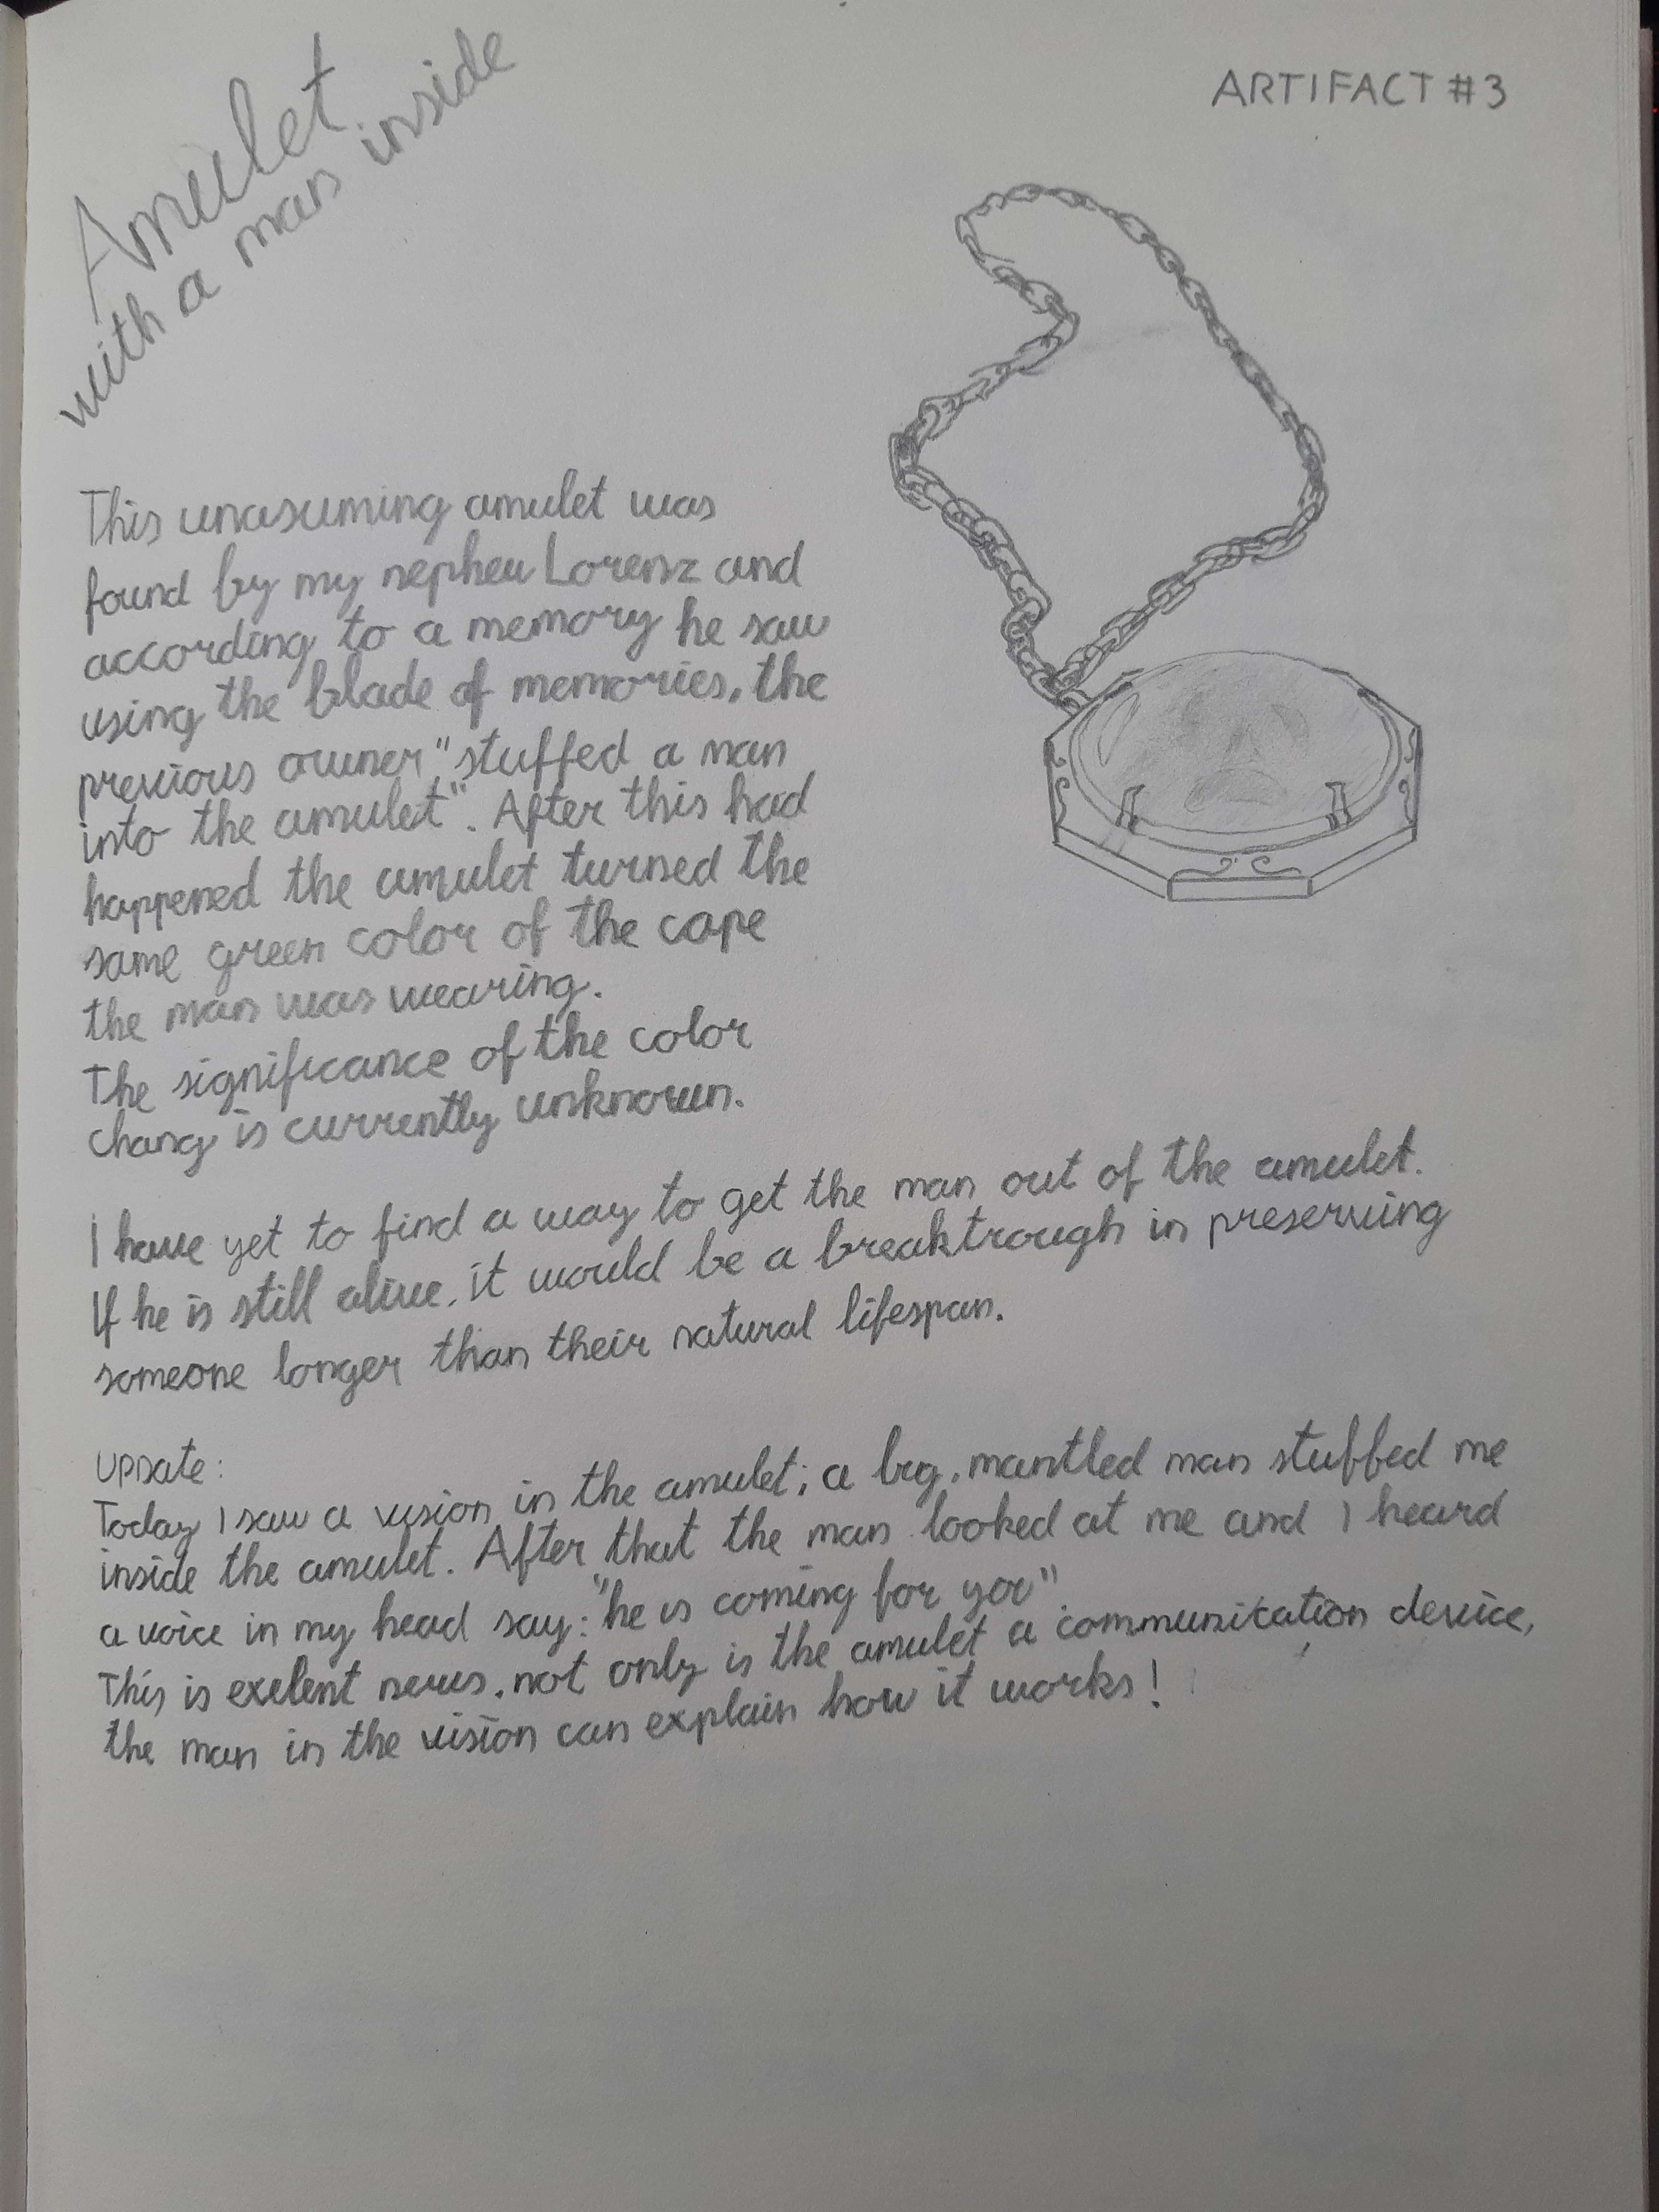 Amulet
with a man inside
ARTIFACT #3
This unasuming amulet was
found by my nepheu Lorenz and
according to a memory he saw
using the blade of memories, the
previous owner "stuffed a man
into the amulet". After this had
happened the amulet turned the
same green color of the cape
the man was wearing.
The significance of the color
chang is currently unknown.
I have yet to find a way to get the man out of the amulet.
If he is still alive, it would be a breaktrough in preserving
someone longer than their natural lifespan.
UPDate:
Today I saw a vision in the amulet; a big, mantled man stuffed me
inside the amulet. After that the man looked at me and I heard
a voice in my head say: "he is coming for you".
This is exelent news, not only is the amulet a communication device,
the man in the vision can explain how it works!